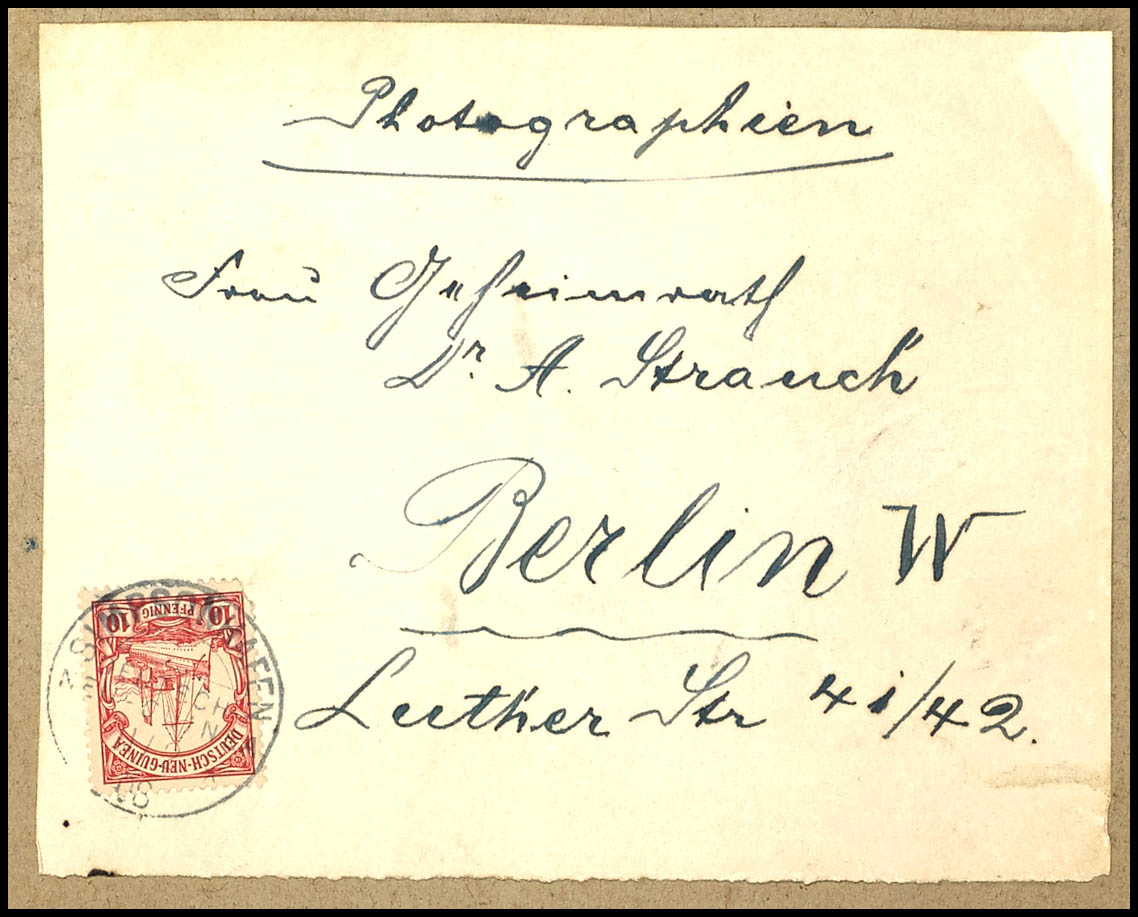 Photographien
Frau Geheimrath
Dr. A. Strauch
Berlin W
Luther Str 41/42.
10 PFENNIG 10
DEUTSCH-NEU-GUINEA
SIMPSONHAFEN
08